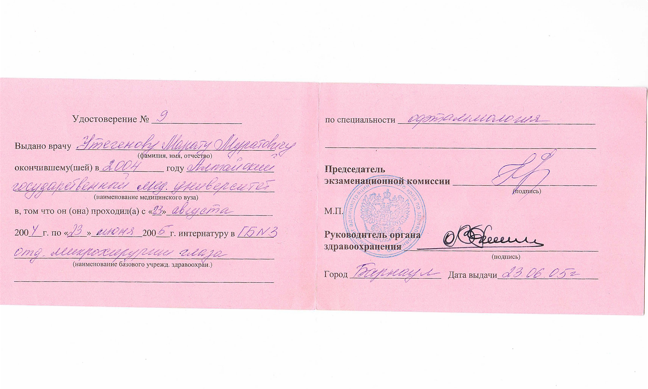 Удостоверение № 9
Выдано врачу Утегенову Марату Муратовичу
(фамилия, имя, отчество)
окончившему(шей) в 2004 году Алтайский
государственный мед. университет
(наименование медицинского вуза)
в, том что он (она) проходил(а) с «23» августа
2004 г. по «23» июня 2005 г. интернатуру в ГБ№3
отд. микрохирургии глаза
(наименование базового учрежд. здравоохран.)
по специальности офтальмология
Председатель
экзаменационной комиссии
(подпись)
М.П.
Руководитель органа
здравоохранения
(подпись)
Город Барнаул Дата выдачи 23.06.05г